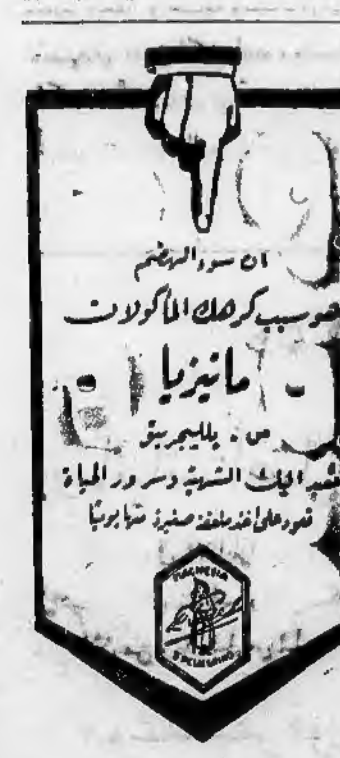 ان سوء الهضم
هو سبب كرهك المأكولات
مانيزيا
س . بلليجرينو
تعيد اليك الشهية وسرور الحياة
تعود على اخذ ملعقة صغيرة منها يوميًا
MAGNESIA
S. PELLEGRINO